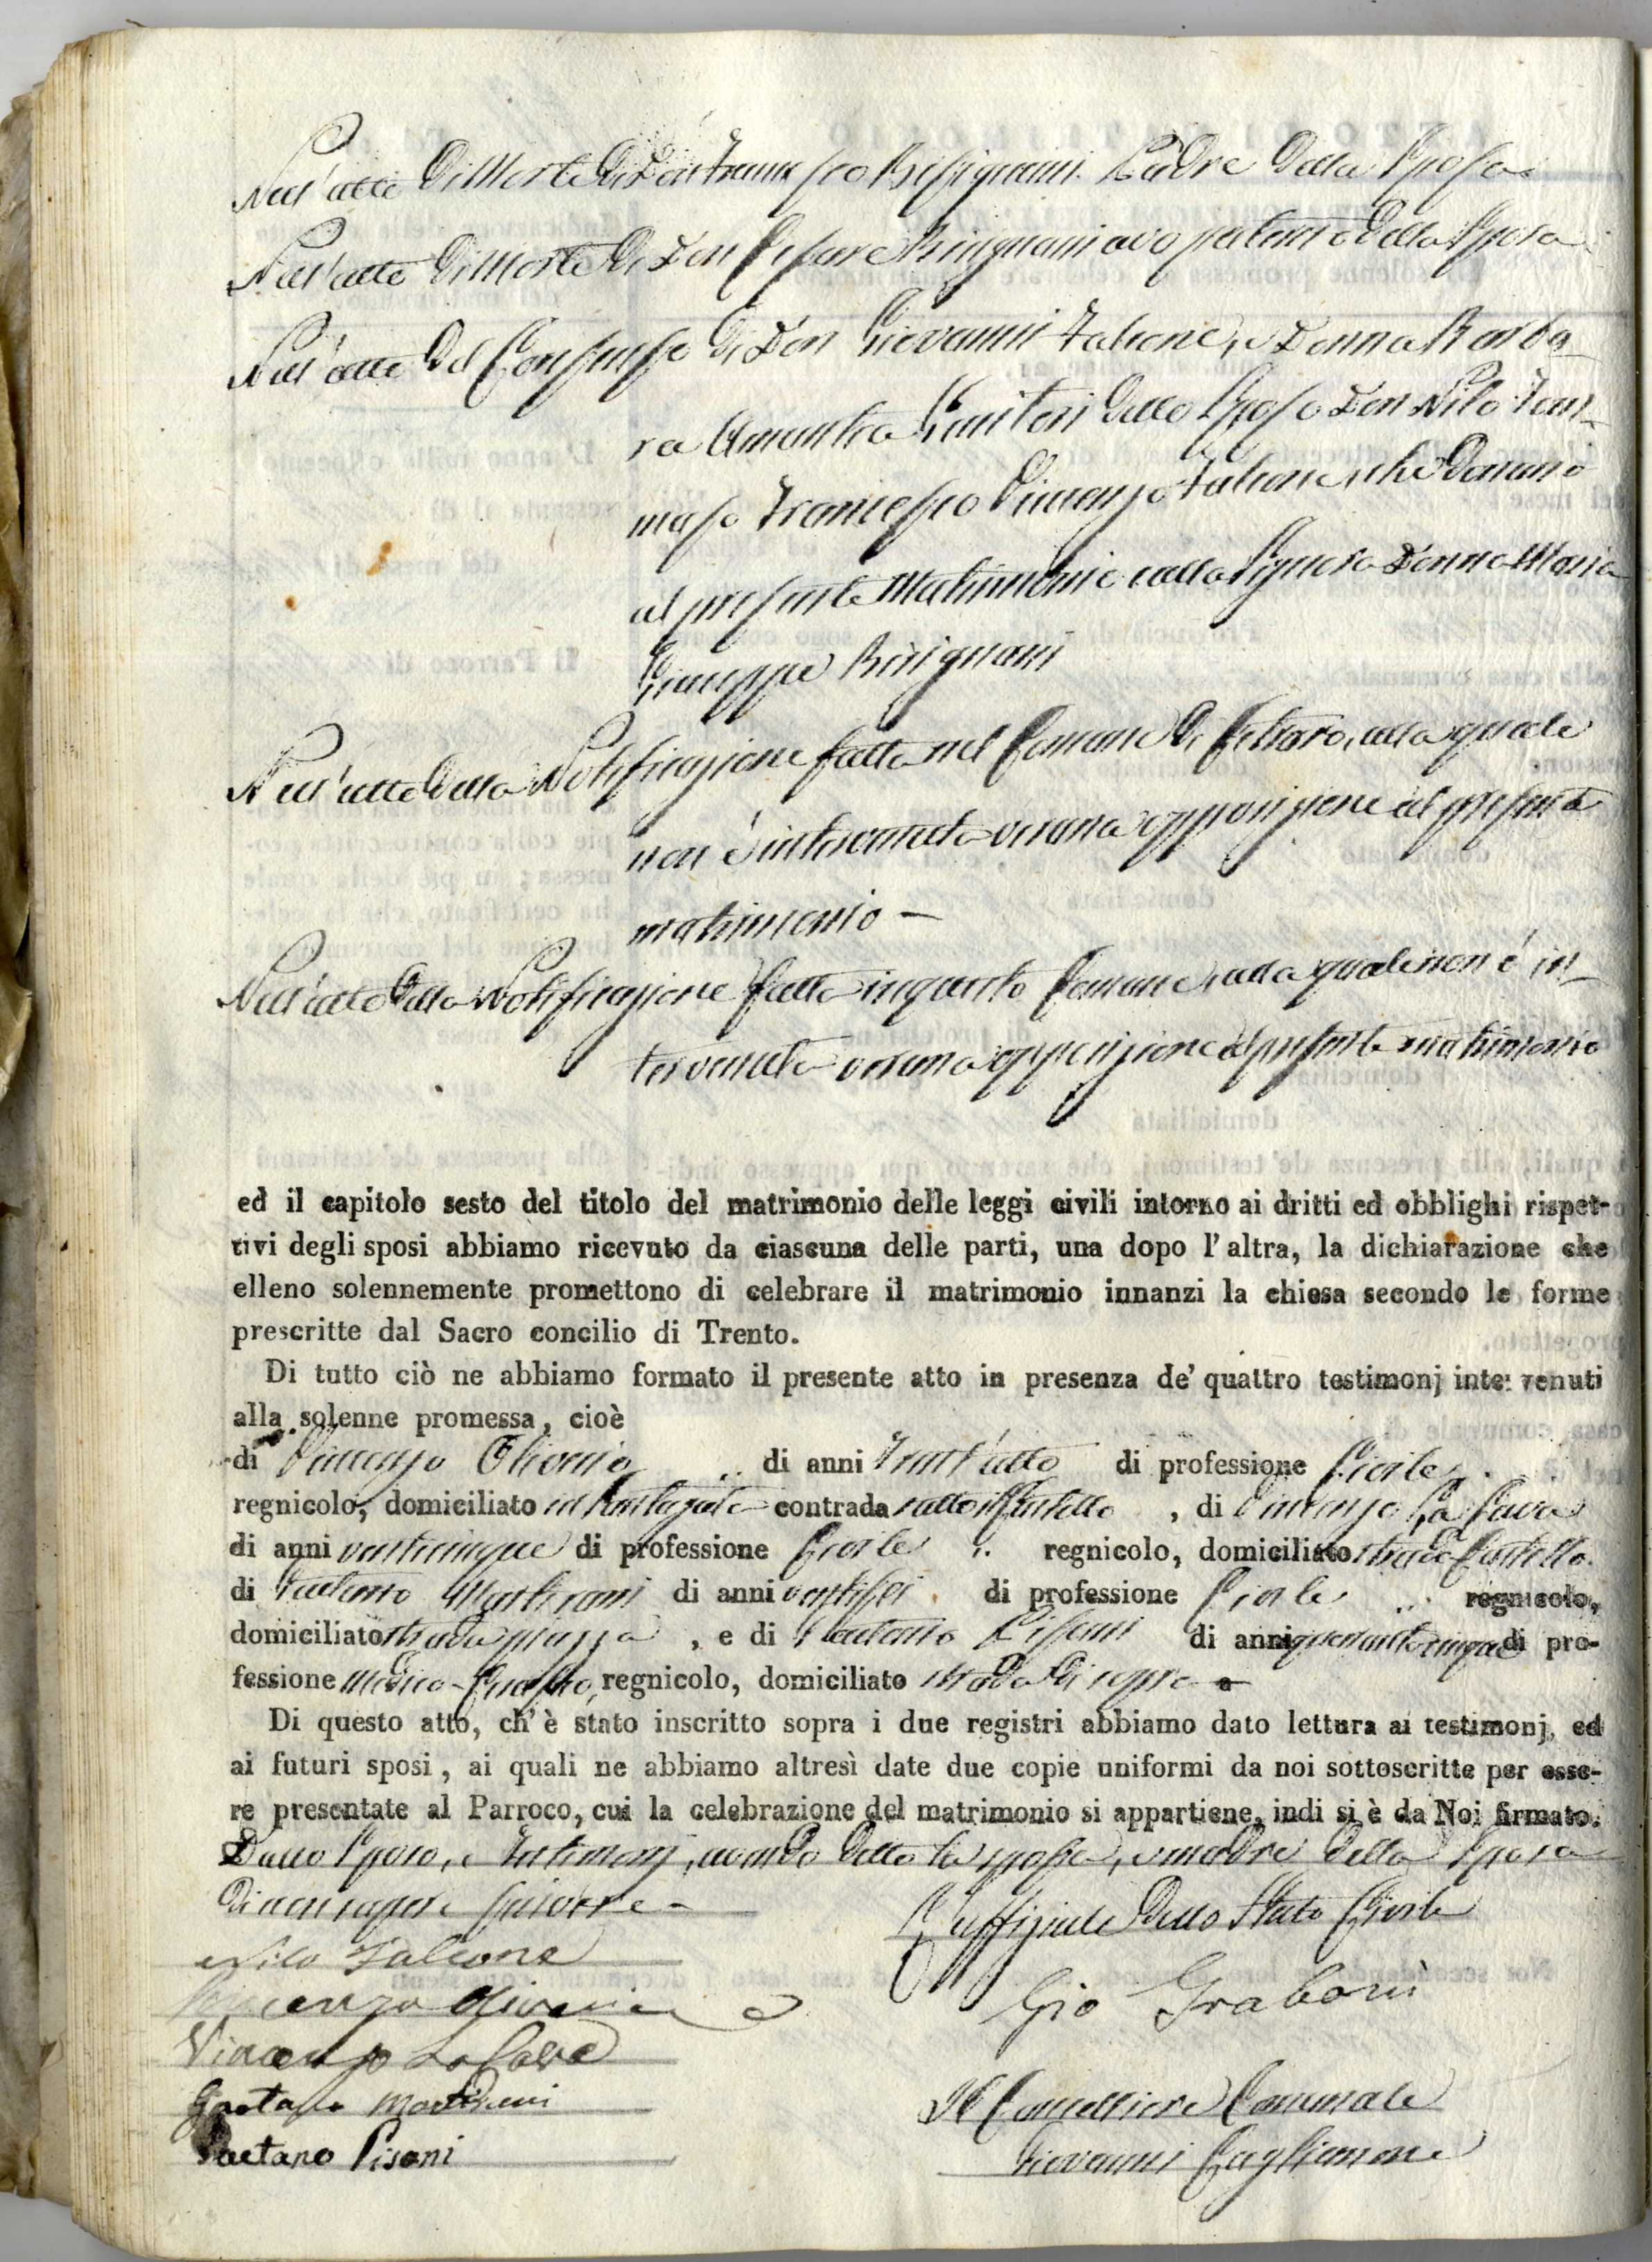 Nell'atto di Morte di Don Francesco Bisignani Padre della Sposa
Nell'atto di Morte di Don Cesare Bisignani avo paterno della Sposa
Nell'atto del Consenso di Don Giovanni Falcone, e Donna Barba
ra Amantea Genitori dello Sposo Don Nilo Tom-
maso Francesco Vincenzo Falcone, che Danno
al presente Matrimonio colla Signora Donna Maria
Giuseppa Bisignani
Nell'atto della Notificazione fatta nel Comune di Cetraro, alla quale
non è intervenuta veruna opposizione al presente
matrimonio —
Nell'atto della Notificazione fatta in questo Comune, alla quale non è in-
tervenuta veruna opposizione al presente matrimonio
ed il capitolo sesto del titolo del matrimonio delle leggi civili intorno ai dritti ed obblighi rispet-
tivi degli sposi abbiamo ricevuto da ciascuna delle parti, una dopo l'altra, la dichiarazione che
elleno solennemente promettono di celebrare il matrimonio innanzi la chiesa secondo le forme
prescritte dal Sacro concilio di Trento.
Di tutto ciò ne abbiamo formato il presente atto in presenza de' quattro testimonj intervenuti
alla solenne promessa, cioè
di Vincenzo Oliverio di anni trent'otto di professione Civile
regnicolo, domiciliato in contrada sotto il Castello, di Vincenzo La Cava
di anni venticinque di professione Civile regnicolo, domiciliato strada Castello
di Gaetano Martirani di anni ventisei di professione Civile regnicolo,
domiciliato strada piazza, e di Gaetano Pisani di anni quarantacinque di pro-
fessione Medico-Cerusico, regnicolo, domiciliato strada di sopra
Di questo atto, ch'è stato inscritto sopra i due registri abbiamo dato lettura ai testimonj, ed
ai futuri sposi, ai quali ne abbiamo altresì date due copie uniformi da noi sottoscritte per esse-
re presentate al Parroco, cui la celebrazione del matrimonio si appartiene, indi si è da Noi firmato.
Dallo Sposo, e testimonj, avendo detto la sposa, e madre della Sposa
di non sapere scrivere —
L'uffiziale dello Stato Civile
Nilo Falcone
Vincenzo Oliverio
Gio Grabani
Vincenzo La Cava
Gaetano Martirani
Il Cancelliere Comunale
Gaetano Pisani
Giovanni Caglianone